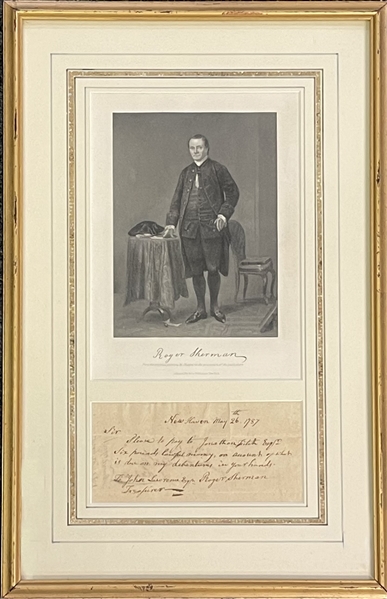 Roger Sherman
New Haven May 26th 1787
Sir
Please to pay to Jonathan Fitch Esqr.
Six pounds lawful money, on account of what
is due on my debentures in your hands.
To John Lawrence Esqr. Roger Sherman
Treasurer